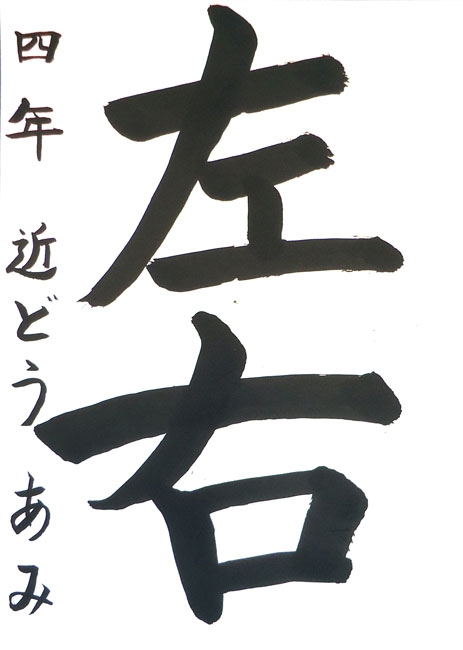 左右
四年 近どう あみ